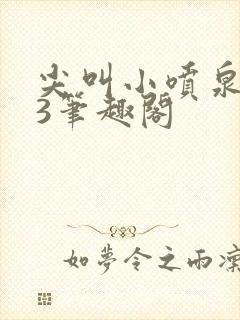 尖叫小喷泉
3笔趣阁
如梦令之雨凛